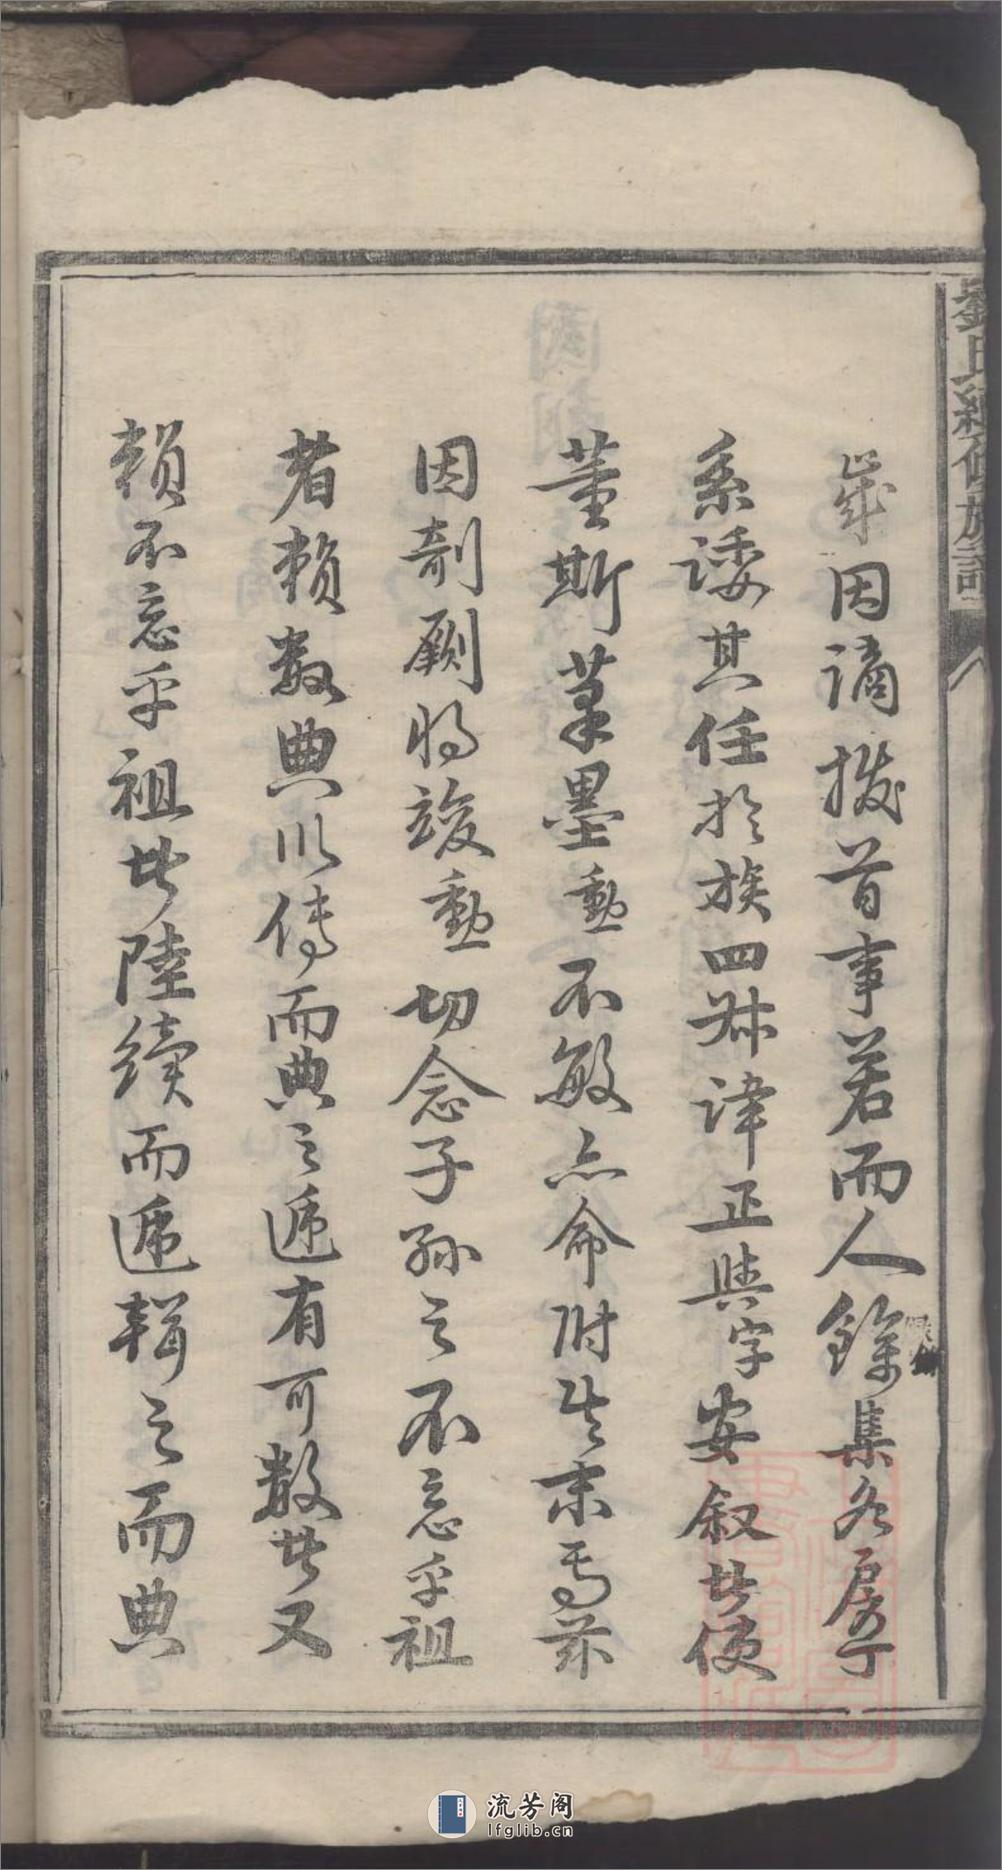 劉氏續修族譜
歲因謫拔首事若而人餘集各房丁
系諉其任於族四叔諱正與字安叙者使
董斯革墨勳不敏亦命附其末焉茲
因剞劂將竣勳切念子孫之不忘乎祖
者賴數典以傳而典之遞有可數者又
賴不忘乎祖者陸續而遞輯之而典
流芳阁
lfglib.cn